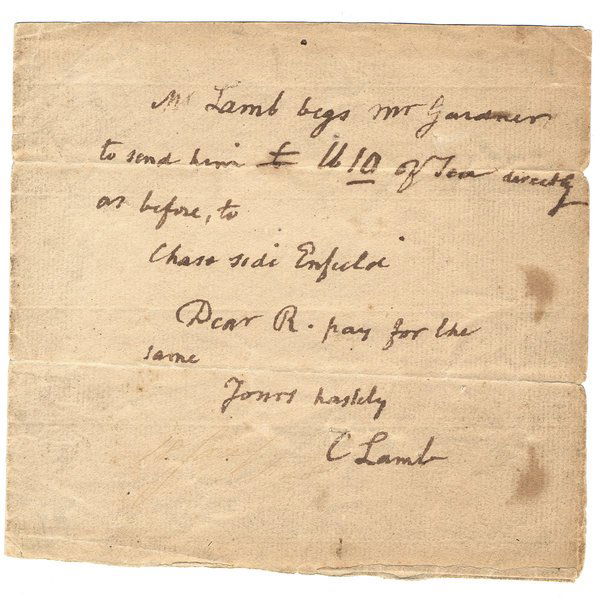 Mr Lamb begs Mr Gardner
to send him lb 10 of Tea directly
as before, to
Chase side Enfield
Dear R. pay for the
same
Yours hastily
C Lamb